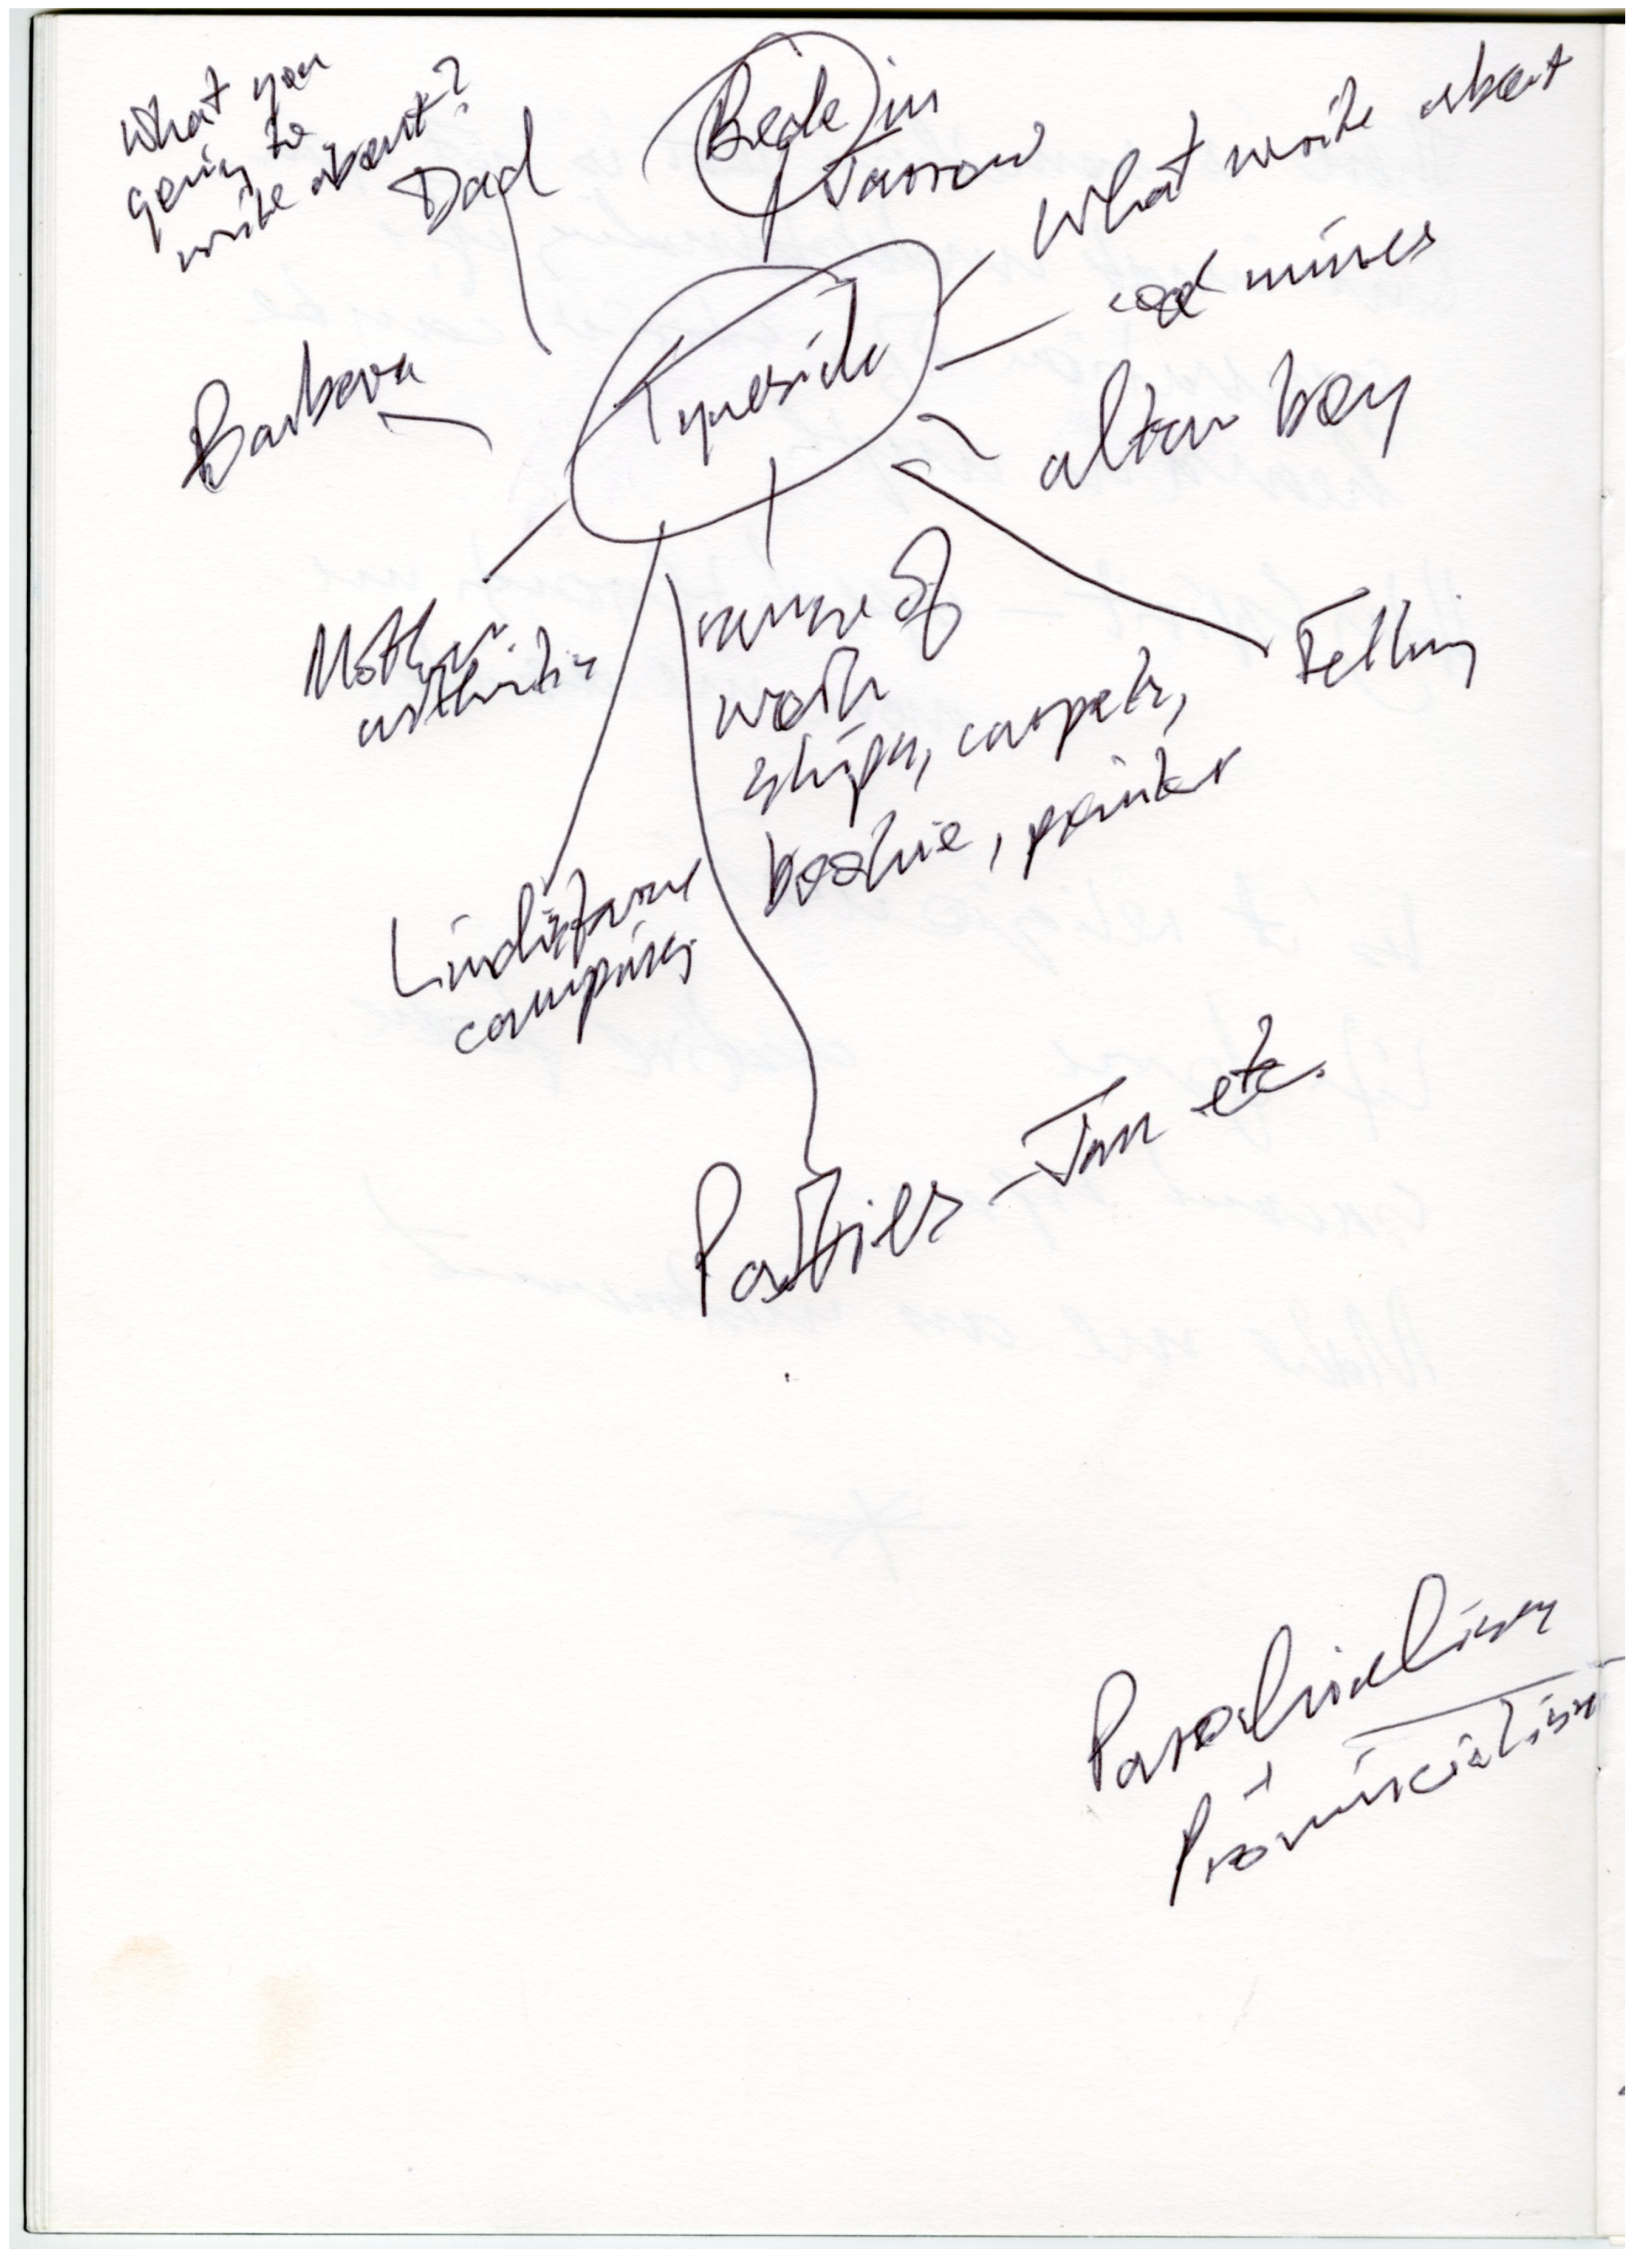 What you
going to
write about?
Dad
Bede in
Jarrow
What write about
coal mines
Tyneside
Barbara
altar boy
Mother
arthritis
range of
work
ships, carpets,
bookie, painter
Felling
Lindisfarne
camping
Parties – Jan etc.
Parochialism
Provincialism